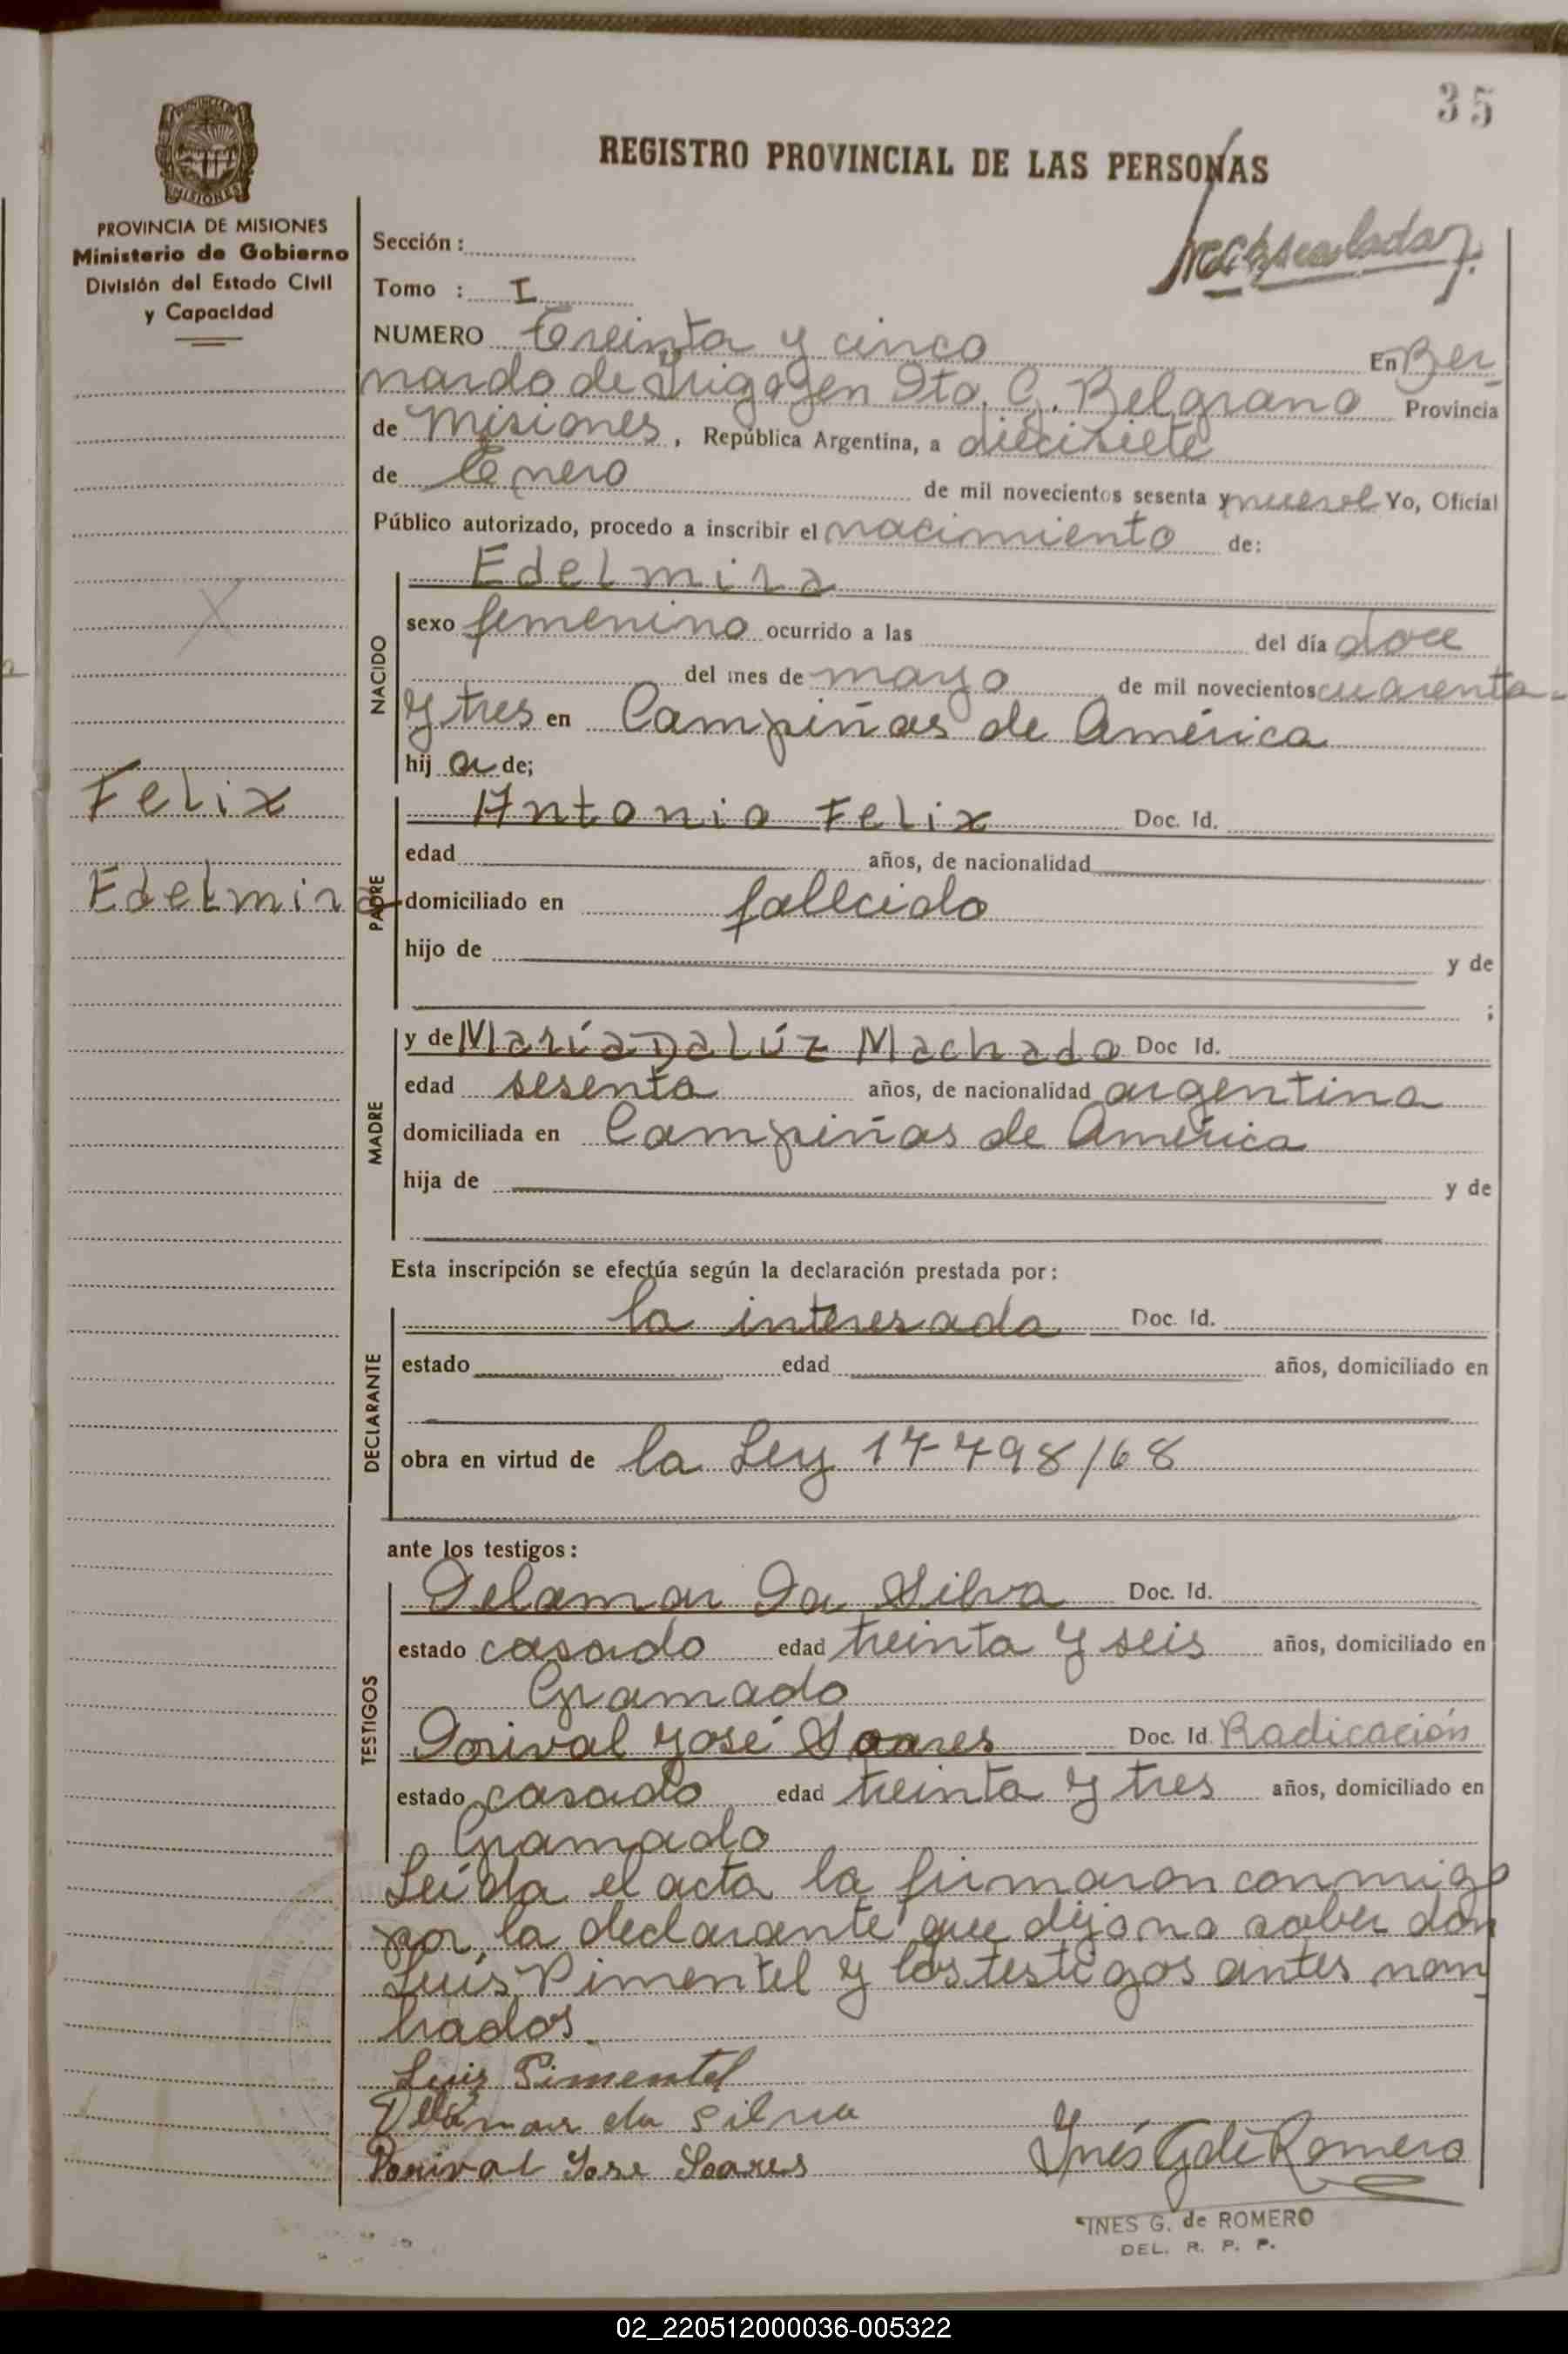 35
REGISTRO PROVINCIAL DE LAS PERSONAS
MISIONES
PROVINCIA DE MISIONES
Ministerio de Gobierno
División del Estado Civil
y Capacidad
Sección :
Tomo : I
NUMERO Treinta y cinco En Ber-
nardo de Irigoyen Dto. G. Belgrano Provincia
de Misiones, República Argentina, a diecisiete
de Enero de mil novecientos sesenta y nueve Yo, Oficial
Público autorizado, procedo a inscribir el nacimiento de:
NACIDO
Edelmira
sexo femenino ocurrido a las del día doce
del mes de mayo de mil novecientos cuarenta-
y tres en Campiñas de América
hij a de;
Felix
Edelmira
PADRE
Antonio Felix Doc. Id.
edad años, de nacionalidad
domiciliado en fallecido
hijo de y de
;
MADRE
y de María Da Lúz Machado Doc Id.
edad sesenta años, de nacionalidad argentina
domiciliada en Campiñas de América
hija de y de
Esta inscripción se efectúa según la declaración prestada por:
DECLARANTE
la interesada Doc. Id.
estado edad años, domiciliado en
obra en virtud de la Ley 17798/68
ante los testigos:
TESTIGOS
Delamar Da Silva Doc. Id.
estado casado edad treinta y seis años, domiciliado en
Gramado
Dorival José Soares Doc. Id. Radicación
estado casado edad treinta y tres años, domiciliado en
Gramado
Leída el acta la firmaron conmigo
por la declarante que dijo no saber don
Luís Pimentel y los testigos antes nom-
brados.
Luis Pimentel
Delamar da Silva
Dorival Jose Soares
Inés G de Romero
INES G. de ROMERO
DEL. R. P. P.
02_220512000036-005322